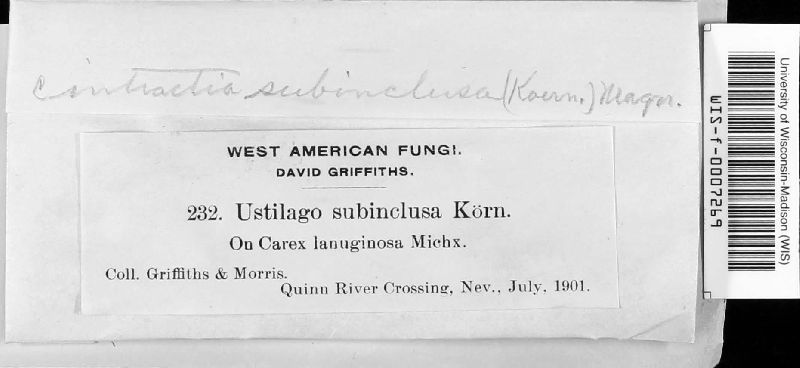 Cintractia subinclusa (Koern.) Magn.
WEST AMERICAN FUNGI.
DAVID GRIFFITHS.
232. Ustilago subinclusa Körn.
On Carex lanuginosa Michx.
Coll. Griffiths & Morris.
Quinn River Crossing, Nev., July, 1901.
University of Wisconsin-Madison (WIS)
WIS-f-0007269